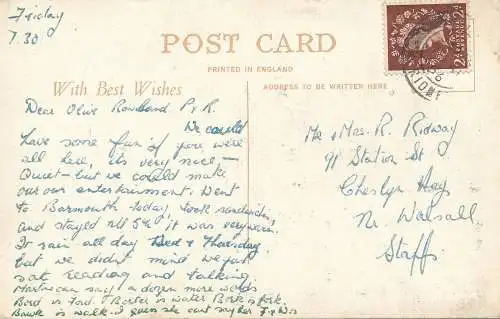 Friday
7.30
POST CARD
PRINTED IN ENGLAND
With Best Wishes
ADDRESS TO BE WRITTEN HERE
Dear Olive Rowland P & R.
We could
have some fun if you were
all here, its very nice -
Quiet - but we could make
our own entertainment. Went
to Barmouth today, took sandwiches,
and stayed till 5½ it was very warm.
It rain all day Wed & Thursday
but we didn't mind we just
sat reading and talking.
say a dozen more words
Bord is Ford. is water Pork is Fork.
is walk. I guess she cant say her F & Ws
Mr & Mrs. R. Ridgway
91 Station St
Cheslyn Hay
Nr. Walsall
Staffs
2d POSTAGE REVENUE 2d